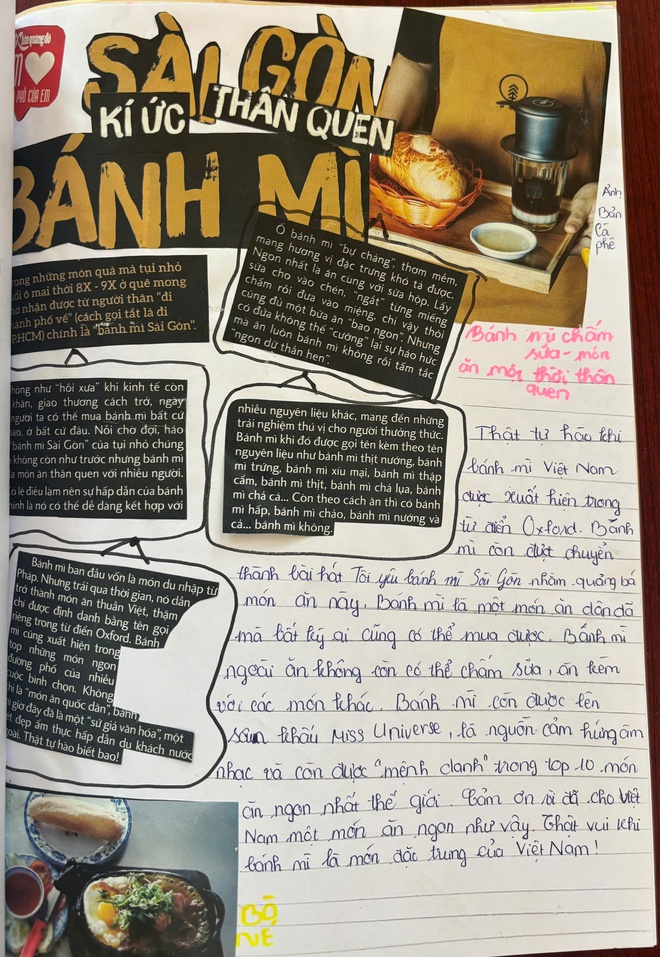 PHỐ CỦA EM
SÀI GÒN
KÍ ỨC THÂN QUEN
BÁNH MÌ
Ảnh:
Bản
cà
phê
Bánh mì chấm
sữa - món
ăn một thời thân
quen
ong những món quà mà tụi nhỏ
ô mai thời 8X - 9X ở quê mong
nhận được từ người thân "đi
ành phố về" (cách gọi tắt là đi
P.HCM) chính là "bánh mì Sài Gòn".
Ổ bánh mì "bự chảng", thơm mềm,
mang hương vị đặc trưng khó tả được.
Ngon nhất là ăn cùng với sữa hộp. Lấy
sữa cho vào chén, "ngắt" từng miếng
chấm rồi đưa vào miệng, chỉ vậy thôi
cũng đủ một bữa ăn "bao ngon". Nhưng
có đứa không thể "cưỡng" lại sự háo hức
mà ăn luôn bánh mì không rồi tấm tắc
"ngon dữ thần hen".
hông như "hồi xưa" khi kinh tế còn
khăn, giao thương cách trở, ngày
người ta có thể mua bánh mì bất cứ
ao, ở bất cứ đâu. Nỗi chờ đợi, háo
"bánh mì Sài Gòn" của tụi nhỏ chúng
không còn như trước nhưng bánh mì
à món ăn thân quen với nhiều người.
ó lẽ điều làm nên sự hấp dẫn của bánh
hình là nó có thể dễ dàng kết hợp với
nhiều nguyên liệu khác, mang đến những
trải nghiệm thú vị cho người thưởng thức.
Bánh mì khi đó được gọi tên kèm theo tên
nguyên liệu như bánh mì thịt nướng, bánh
mì trứng, bánh mì xíu mại, bánh mì thập
cẩm, bánh mì thịt, bánh mì chả lụa, bánh
mì chả cá... Còn theo cách ăn thì có bánh
mì hấp, bánh mì chảo, bánh mì nướng và
cả... bánh mì không.
Bánh mì ban đầu vốn là món du nhập từ
Pháp. Nhưng trải qua thời gian, nó dần
trở thành món ăn thuần Việt, thậm
chí được định danh bằng tên gọi
riêng trong từ điển Oxford. Bánh
mì cũng xuất hiện trong
top những món ngon
đường phố của nhiều
cuộc bình chọn. Không
hỉ là "món ăn quốc dân", bánh
ì giờ đây đã là "sứ giả văn hóa", một
ét đẹp ẩm thực hấp dẫn du khách nước
oài. Thật tự hào biết bao!
Thật tự hào khi
bánh mì Việt Nam
được xuất hiện trong
từ điển Oxford. Bánh
mì còn được chuyển
thành bài hát Tôi yêu bánh mì Sài Gòn nhằm quảng bá
món ăn này. Bánh mì là một món ăn dân dã
mà bất kỳ ai cũng có thể mua được. Bánh mì
ngoài ăn không còn có thể chấm sữa, ăn kèm
với các món khác. Bánh mì còn được lên
sân khấu Miss Universe, là nguồn cảm hứng âm
nhạc và còn được "mệnh danh" trong top 10 món
ăn ngon nhất thế giới. Cảm ơn vì đã cho Việt
Nam một món ăn ngon như vậy. Thật vui khi
bánh mì là món đặc trưng của Việt Nam!
BÒ
NÉ